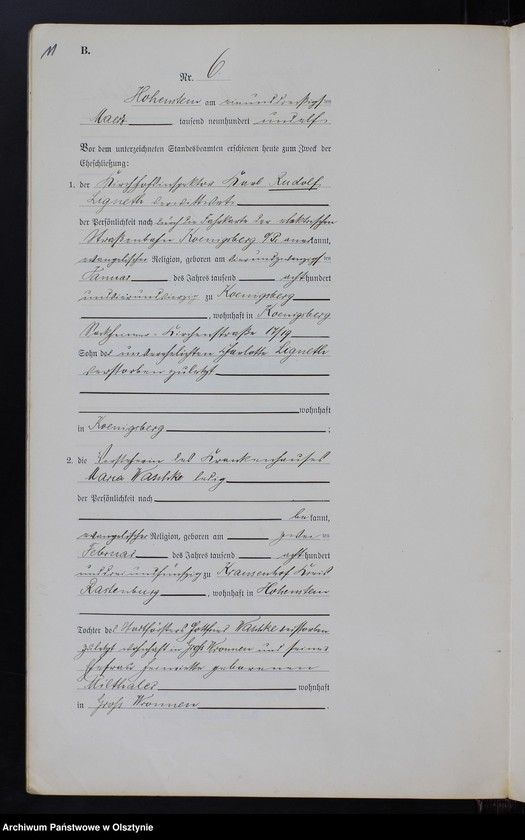 11 B.
Nr. 6
Hohenstein am einunddreißigsten
Maerz tausend neunhundert und elf.
Vor dem unterzeichneten Standesbeamten erschienen heute zum Zweck der
Eheschließung:
1. der Kirchhofsinspektor Karl Rudolf
Lignetti verwitwet
der Persönlichkeit nach durch die Fahrkarte der elektrischen
Straßenbahn Koenigsberg i/Pr. anerkannt,
evangelischer Religion, geboren am
Januar des Jahres tausend acht hundert
zu Koenigsberg
, wohnhaft in Koenigsberg
Kirchenstraße 17/19
Sohn der unverehelichten Charlotte Lignetti
verstorben zuletzt
wohnhaft
in Koenigsberg ;
2. die Vorsteherin des Krankenhauses
Maria Waschke ledig
der Persönlichkeit nach
be kannt,
evangelischer Religion, geboren am zwei ten
Februar des Jahres tausend acht hundert
und drei und fünfzig zu Krausenhof Kreis
Rastenburg , wohnhaft in Hohenstein
Tochter des Gottfried Waschke verstorben
zuletzt wohnhaft in Groß Wronnen und seiner
Ehefrau Henriette geborenen
Milthaler wohnhaft
in Groß Wronnen .
Archiwum Państwowe w Olsztynie